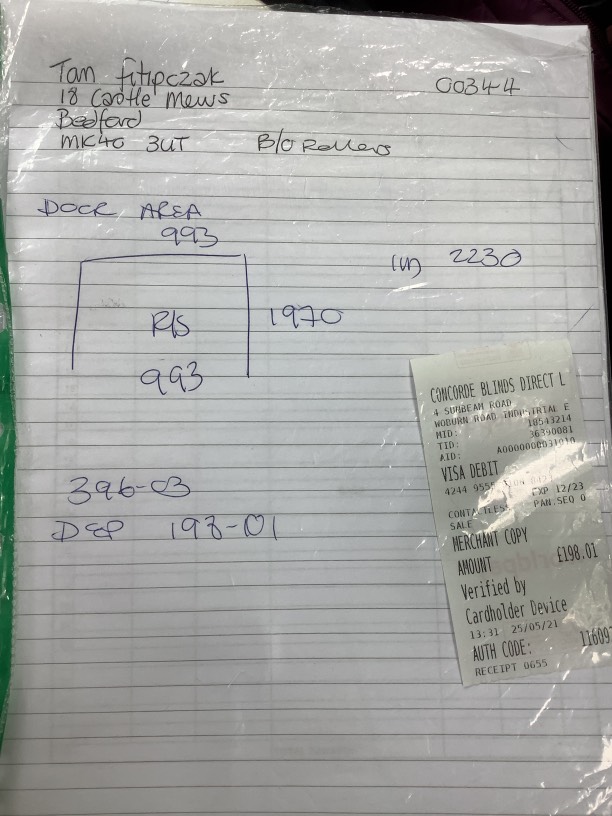 Tom Filipczak
00344
18 Castle Mews
Bedford
MK40 3UT B/O Rollers
DOOR AREA
993
IM 2230
R/S 1970
993
396-03
DEP 198-01
CONCORDE BLINDS DIRECT L
4 SUNBEAM ROAD
WOBURN ROAD INDUSTRIAL E
MID: 10543214
TID: 36390081
AID: A0000000031010
VISA DEBIT
4244 955
EXP 12/23
CONTACTLESS PAN.SEQ 0
SALE
MERCHANT COPY
AMOUNT £198.01
Verified by
Cardholder Device
13:31 25/05/21
AUTH CODE: 11609
RECEIPT 0655